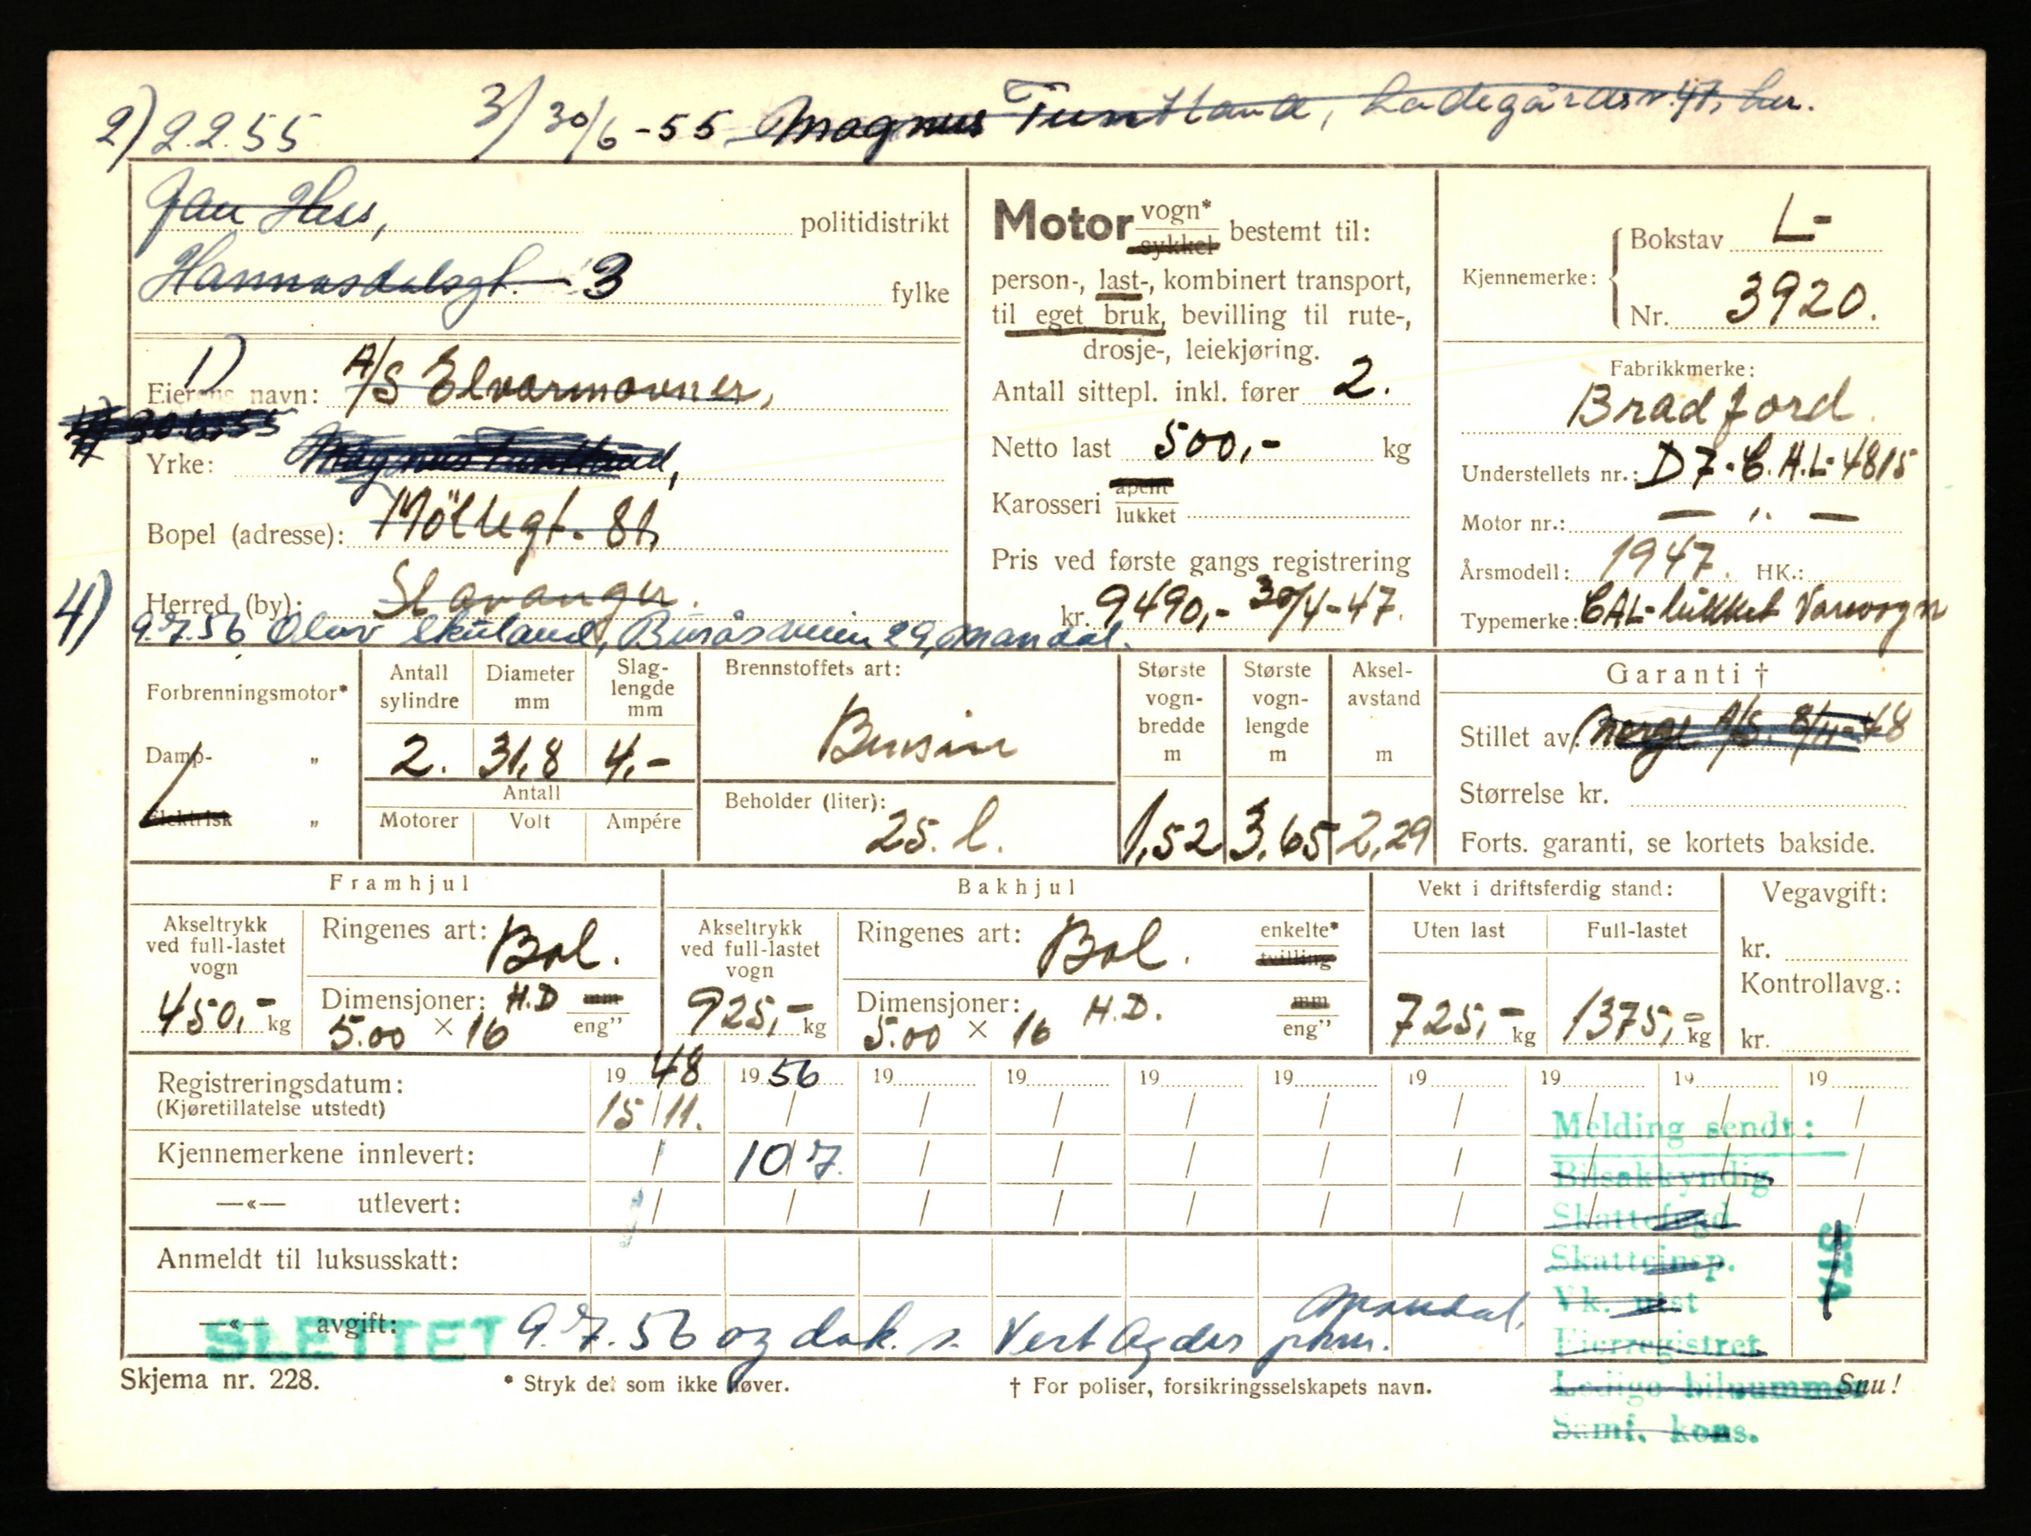 2) 2.2.55   3/ 30/6-55 Magnus Tuntland, Ladegårdsv. 47, her.
Jan Hess, politidistrikt
Hannasdalsgt. 3 fylke
1)
Eierens navn: A/S Elvarmovner,
30.6.55
Yrke: Magnus Tuntland,
Bopel (adresse): Möllegt. 81,
Herred (by): Stavanger.
4) 9.7.56 Olav Skuland, Buråsveien 29, Mandal.
Motor vogn* sykkel bestemt til:
person-, last-, kombinert transport,
til eget bruk, bevilling til rute-,
drosje-, leiekjøring.
Antall sittepl. inkl. fører 2.
Netto last 500,- kg
Karosseri åpent lukket
Pris ved første gangs registrering
kr. 9,490,- 30/4-47.
Kjennemerke: Bokstav L-
Nr. 3920.
Fabrikkmerke:
Bradford.
Understellets nr.: D7-C.A.L-4815
Motor nr.: — " —
Årsmodell: 1947. HK.:
Typemerke: CAL-lukket Varevogn
Forbrenningsmotor*
Damp- "
Elektrisk "
Antall sylindre 2.
Diameter mm 31,8
Slaglengde mm 4,-
Antall
Motorer Volt Ampére
Brennstoffets art:
Bensin
Beholder (liter):
25. l.
Største vognbredde m 1,52
Største vognlengde m 3,65
Akselavstand m 2,29
Garanti †
Stillet av: Norge A/S. 8/11-48
Størrelse kr.
Forts. garanti, se kortets bakside.
Framhjul
Akseltrykk ved full-lastet vogn 450,- kg
Ringenes art: Bal.
Dimensjoner: H.D mm
5.00 × 16 eng"
Bakhjul
Akseltrykk ved full-lastet vogn 925,- kg
Ringenes art: Bal. enkelte* tvilling
Dimensjoner: H.D. mm
5.00 × 16 eng"
Vekt i driftsferdig stand:
Uten last 725,- kg
Full-lastet 1375,- kg
Vegavgift:
kr.
Kontrollavg.:
kr.
Registreringsdatum: 1948 1956 19 19 19 19 19 19 19 19
(Kjøretillatelse utstedt) 15/11. / / / / / / / / /
Kjennemerkene innlevert: / 10/7. / / / / / / / /
—«— utlevert: / / / / / / / / / /
Anmeldt til luksusskatt:
—«— avgift:
SLETTET 9.7.56 og dok. s. Vest Agder pkm. Mandal.
Melding sendt:
Bilsakkyndig
Skattefogd
Skatteinsp.
Vk. utst
Eierregistret
Ledige bilnummer
Samf. kons.
STA
Skjema nr. 228.
* Stryk det som ikke høver.
† For poliser, forsikringsselskapets navn.
Snu!